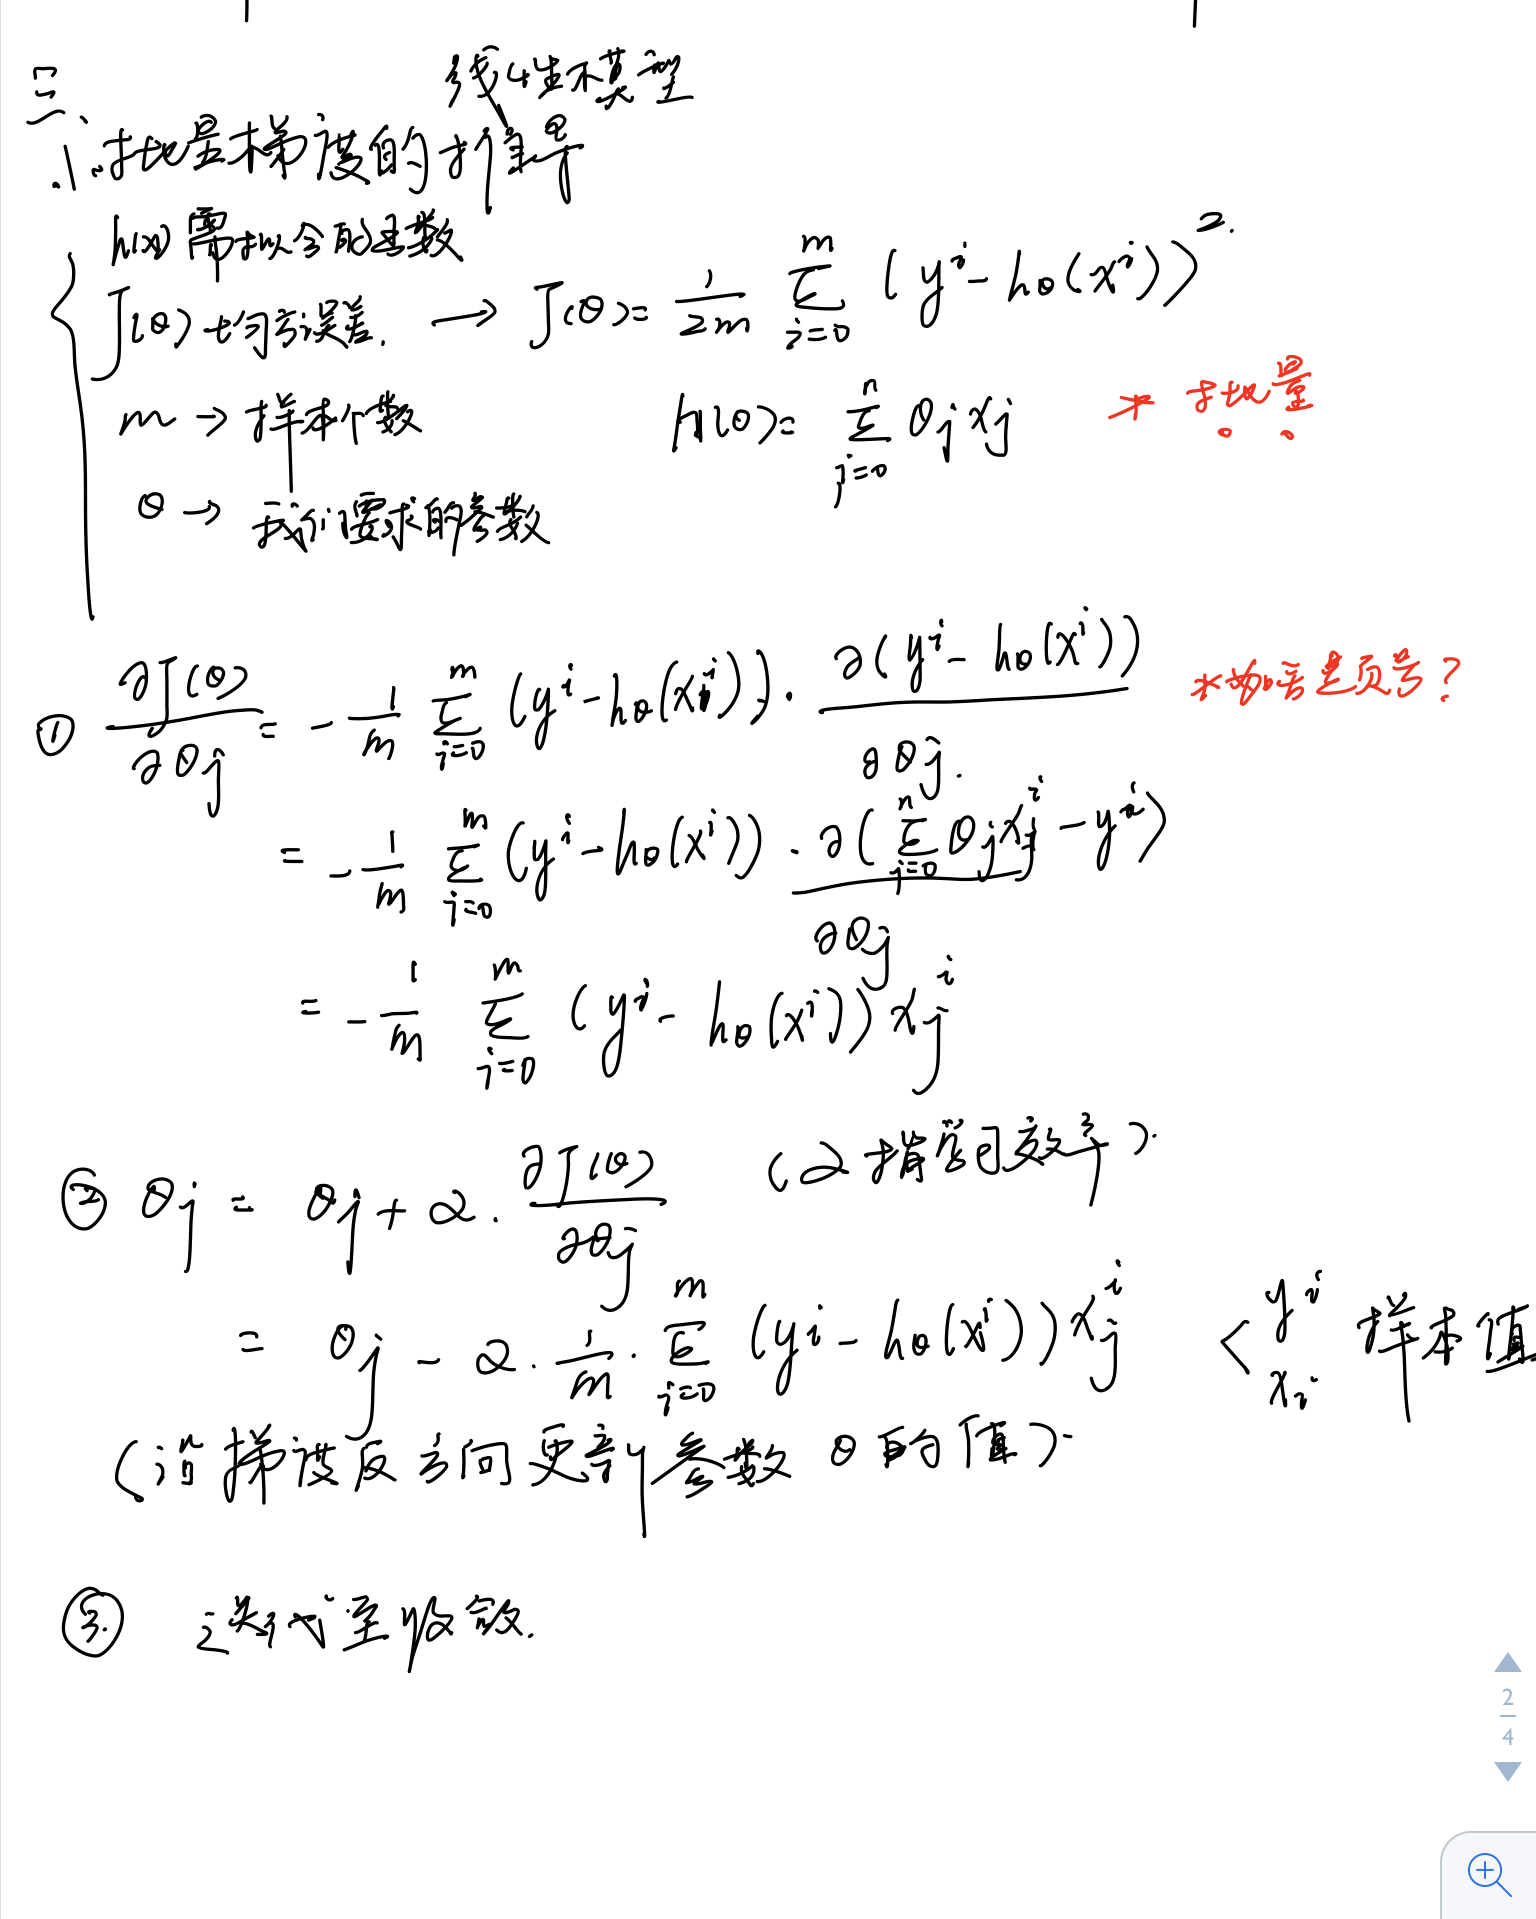 三、
线性模型
1. 批量梯度的推导
h(x) 需拟合的函数
J(θ) 均方误差. → J(θ)= 1/2m Σ_{i=0}^{m} (y^i - h_θ(x^i))^2.
m → 样本个数 h(θ)= Σ_{j=0}^{n} θ_j x_j * 批量
θ → 我们要求的参数
① ∂J(θ)/∂θ_j = - 1/m Σ_{i=0}^{m} (y^i - h_θ(x^i)) · ∂(y^i - h_θ(x^i))/∂θ_j. *为啥是负号?
= - 1/m Σ_{i=0}^{m} (y^i - h_θ(x^i)) · ∂(Σ_{j=0}^{n} θ_j x_j^i - y^i)/∂θ_j
= - 1/m Σ_{i=0}^{m} (y^i - h_θ(x^i)) x_j^i
② θ_j = θ_j + α · ∂J(θ)/∂θ_j (α 指学习效率).
= θ_j - α · 1/m · Σ_{i=0}^{m} (y^i - h_θ(x^i)) x_j^i < y^i x_i 样本值
(沿梯度反方向更新参数 θ 的值).
③. 迭代至收敛.
2
4